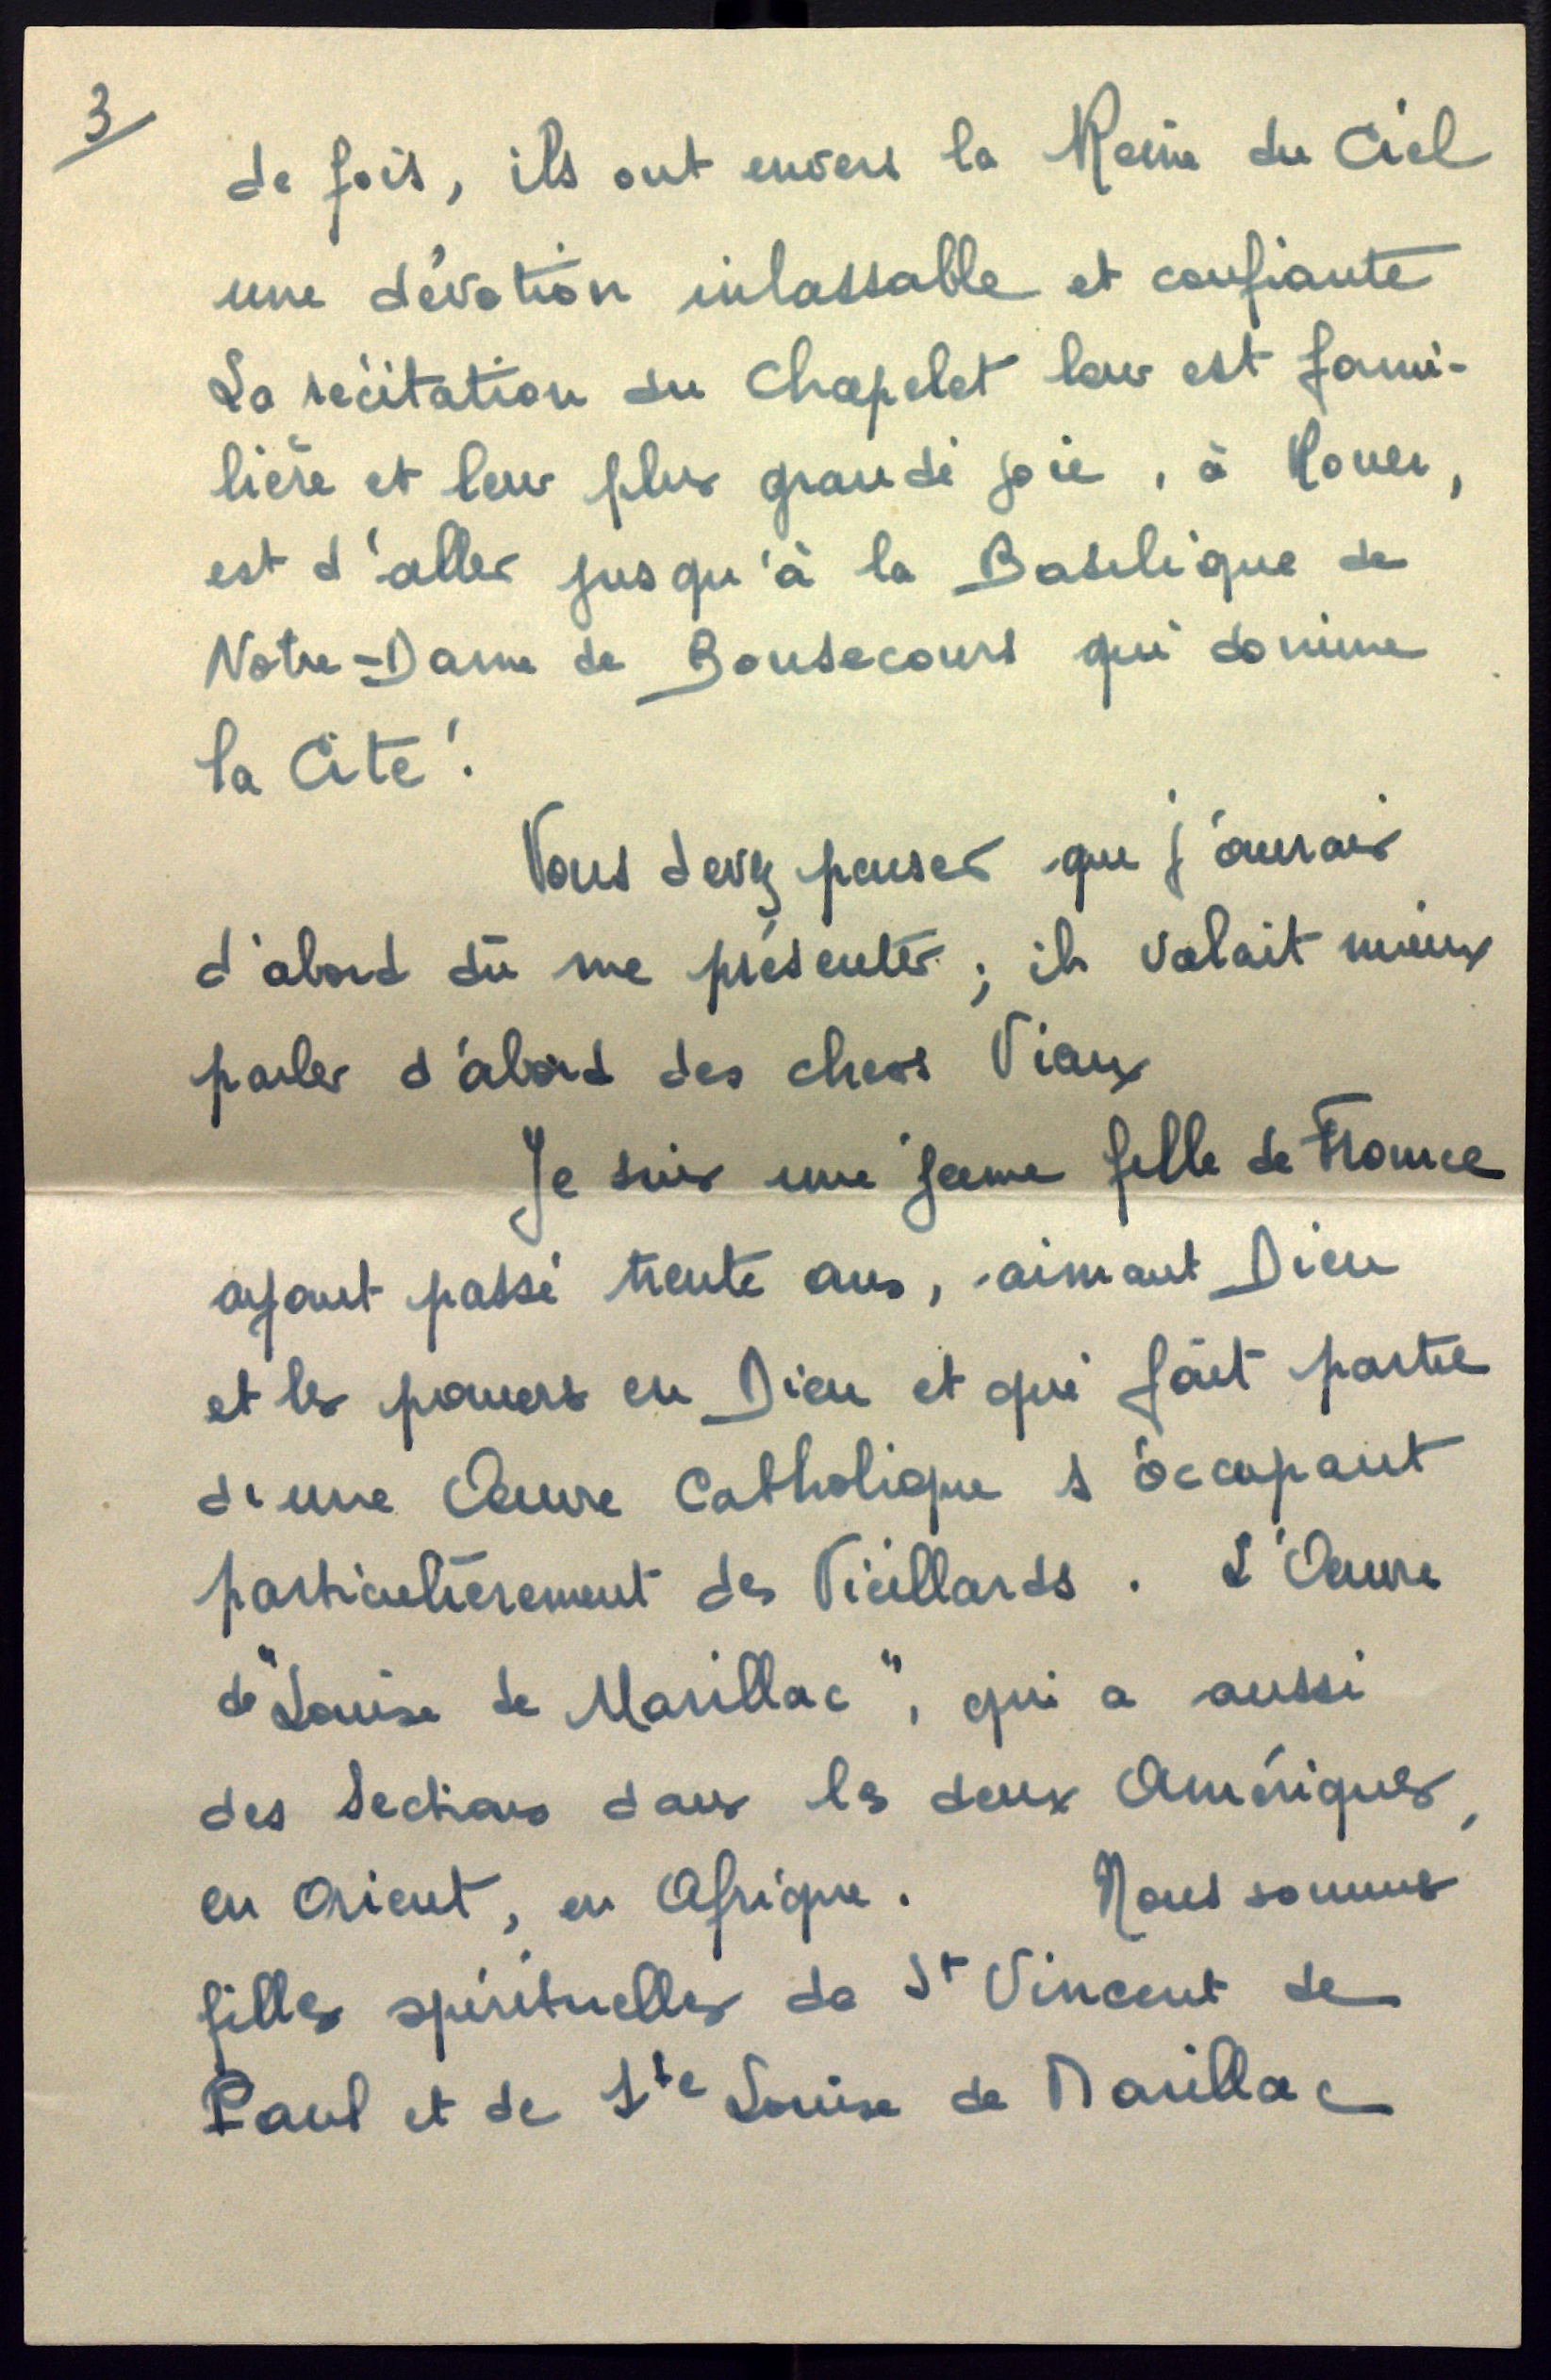 3/
de fois, ils ont envers la Reine du Ciel
une dévotion inlassable et confiante
La récitation du Chapelet leur est fami-
lière et leur plus grande joie, à Rouen,
est d'aller jusqu'à la Basilique de
Notre-Dame de Bonsecours qui domine
la Cité.
Vous devez penser que j'aurais
d'abord dû me présenter; il valait mieux
parler d'abord des chers Vieux
Je suis une jeune fille de France
ayant passé trente ans, aimant Dieu
et les pauvres en Dieu et qui fait partie
d'une Oeuvre Catholique s'occupant
particulièrement des Vieillards. L'Oeuvre
de "Louise de Marillac", qui a aussi
des Sections dans les deux Amériques,
en Orient, en Afrique. Nous sommes
filles spirituelles de St Vincent de
Paul et de Ste Louise de Marillac